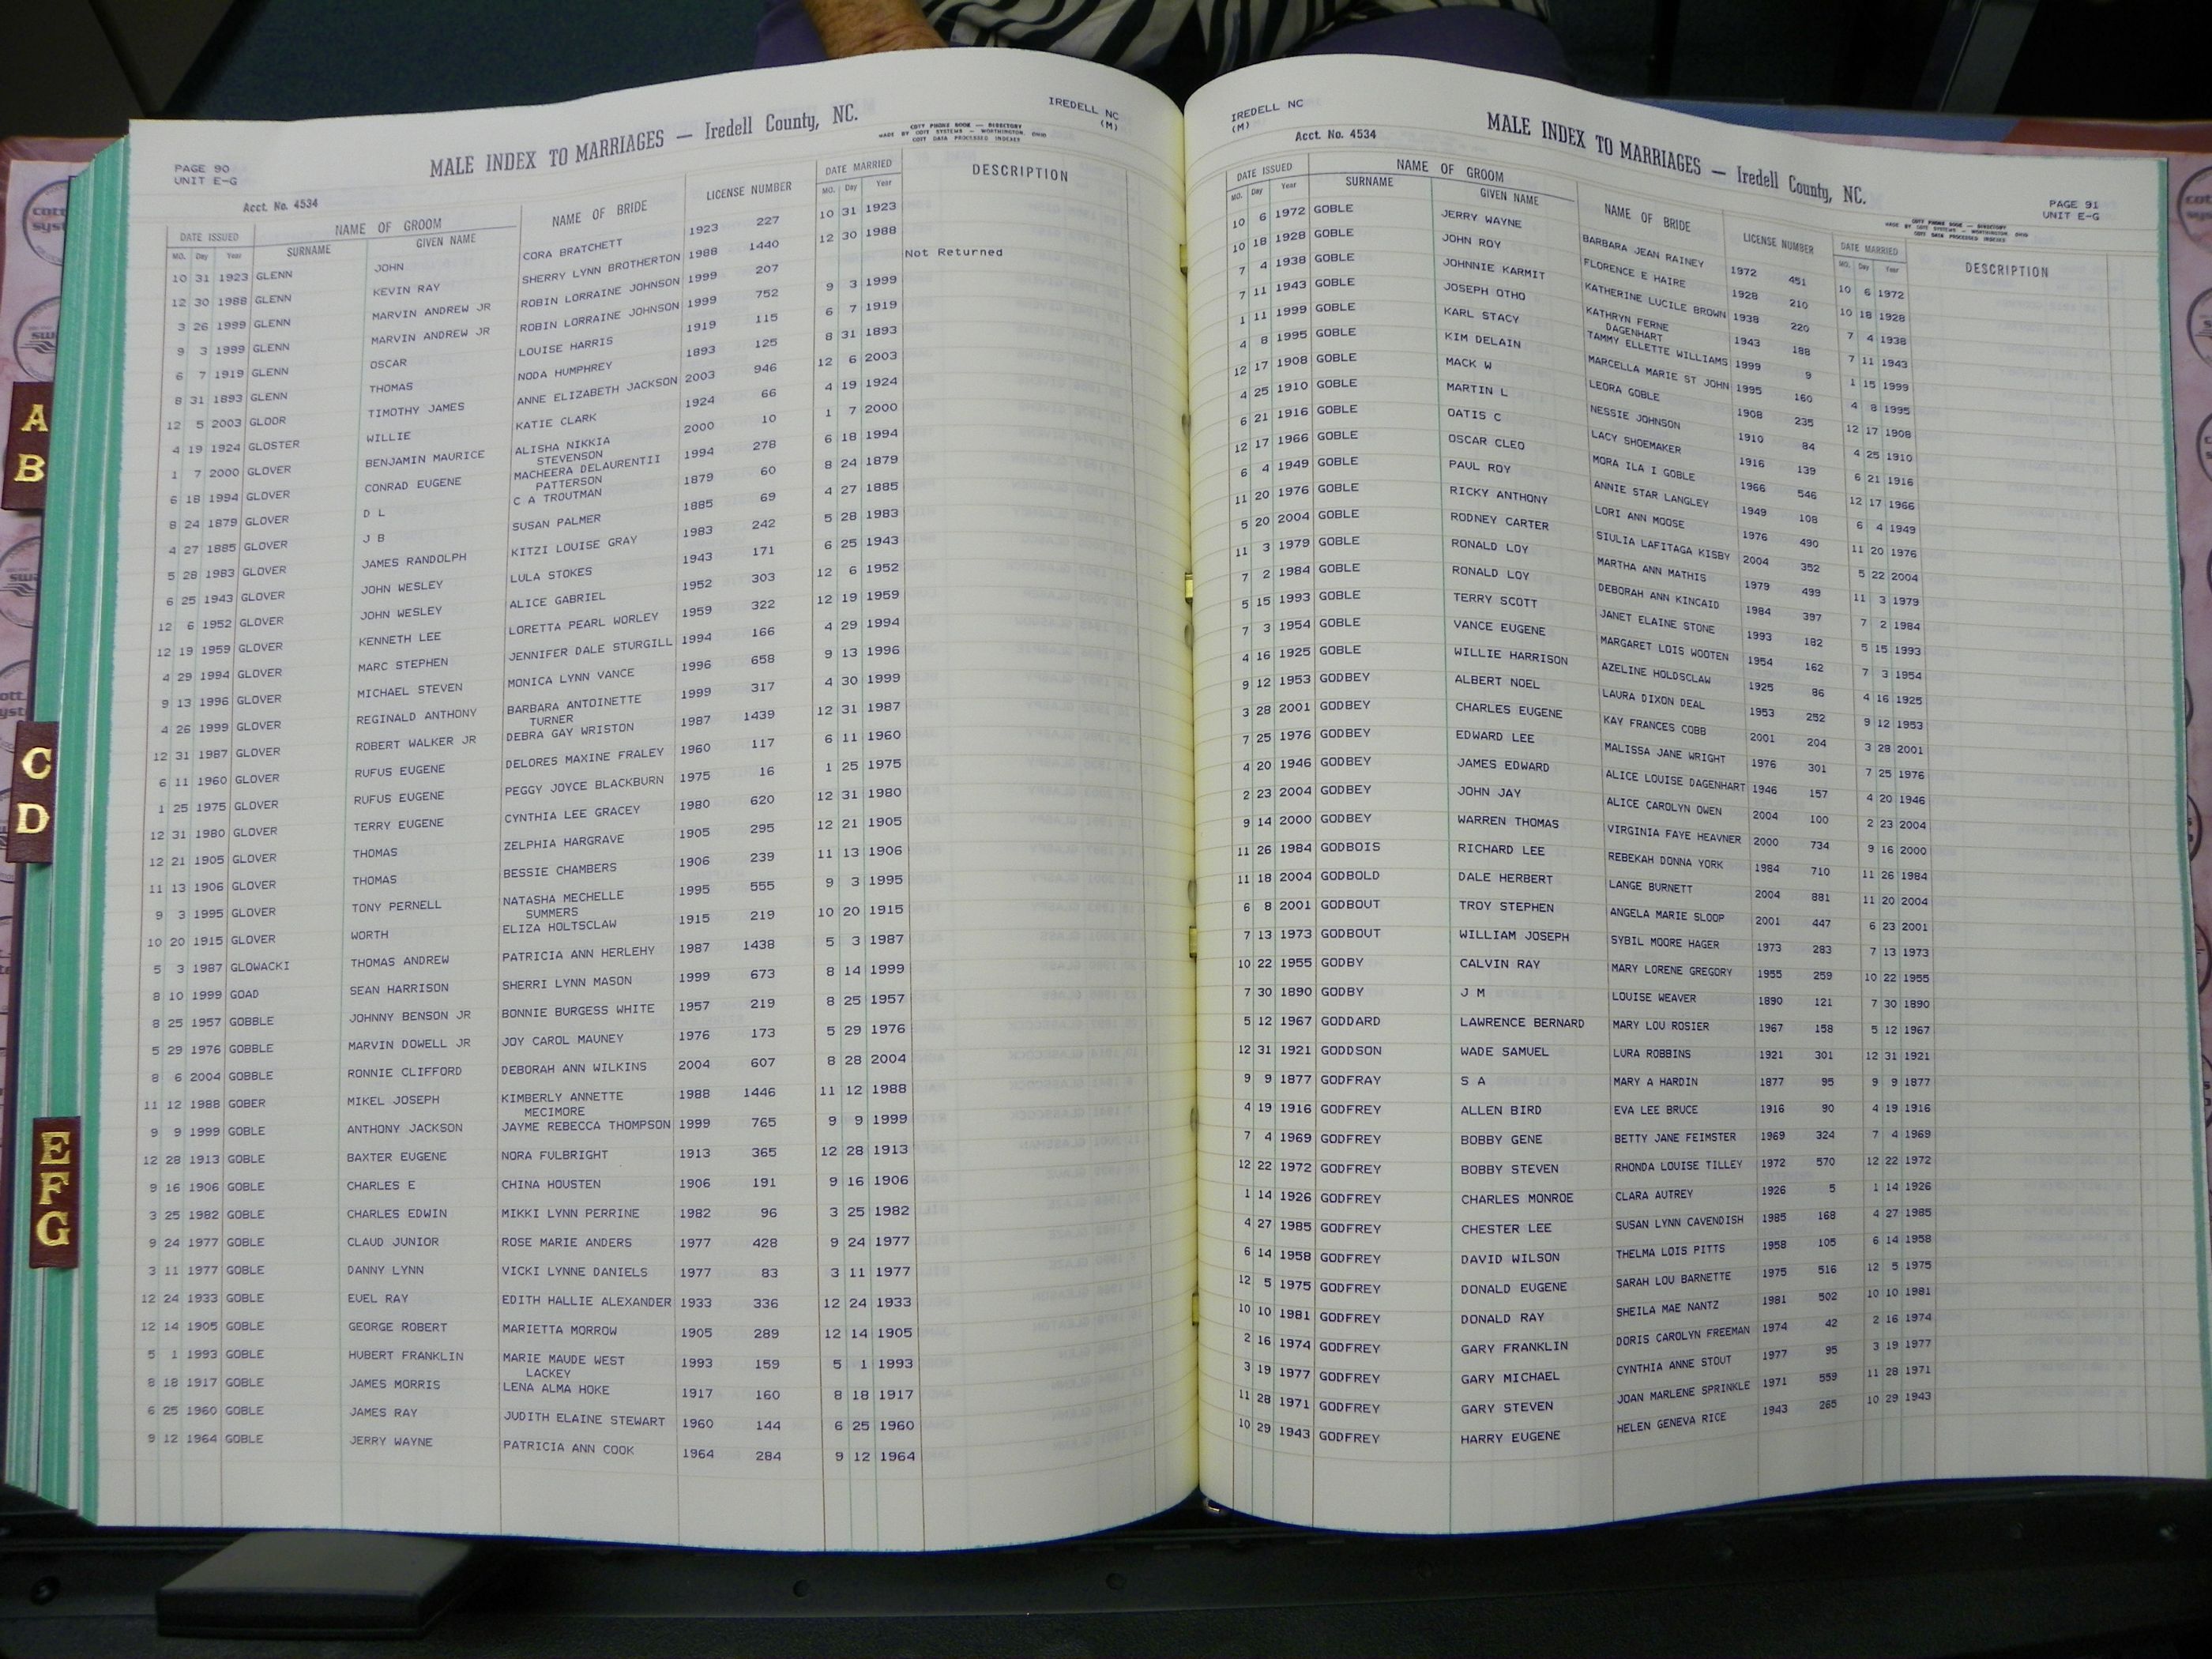 IREDELL NC
(M)
MALE INDEX TO MARRIAGES — Iredell County, NC.
COTT PHONE BOOK — DIRECTORY
MADE BY COTT SYSTEMS — WORTHINGTON, OHIO
COTT DATA PROCESSED INDEXES
PAGE 90
UNIT E-G
Acct. No. 4534
DATE ISSUED NAME OF GROOM NAME OF BRIDE LICENSE NUMBER DATE MARRIED DESCRIPTION
MO. Day Year SURNAME GIVEN NAME MO. Day Year
10 31 1923 GLENN JOHN CORA BRATCHETT 1923 227 10 31 1923
12 30 1988 GLENN KEVIN RAY SHERRY LYNN BROTHERTON 1988 1440 12 30 1988
3 26 1999 GLENN MARVIN ANDREW JR ROBIN LORRAINE JOHNSON 1999 207 Not Returned
9 3 1999 GLENN MARVIN ANDREW JR ROBIN LORRAINE JOHNSON 1999 752 9 3 1999
6 7 1919 GLENN OSCAR LOUISE HARRIS 1919 115 6 7 1919
8 31 1893 GLENN THOMAS NODA HUMPHREY 1893 125 8 31 1893
12 5 2003 GLOOR TIMOTHY JAMES ANNE ELIZABETH JACKSON 2003 946 12 6 2003
4 19 1924 GLOSTER WILLIE KATIE CLARK 1924 66 4 19 1924
1 7 2000 GLOVER BENJAMIN MAURICE ALISHA NIKKIA 2000 10 1 7 2000
STEVENSON
6 18 1994 GLOVER CONRAD EUGENE MACHEERA DELAURENTII 1994 278 6 18 1994
PATTERSON
8 24 1879 GLOVER D L C A TROUTMAN 1879 60 8 24 1879
4 27 1885 GLOVER J B SUSAN PALMER 1885 69 4 27 1885
5 28 1983 GLOVER JAMES RANDOLPH KITZI LOUISE GRAY 1983 242 5 28 1983
6 25 1943 GLOVER JOHN WESLEY LULA STOKES 1943 171 6 25 1943
12 6 1952 GLOVER JOHN WESLEY ALICE GABRIEL 1952 303 12 6 1952
12 19 1959 GLOVER KENNETH LEE LORETTA PEARL WORLEY 1959 322 12 19 1959
4 29 1994 GLOVER MARC STEPHEN JENNIFER DALE STURGILL 1994 166 4 29 1994
9 13 1996 GLOVER MICHAEL STEVEN MONICA LYNN VANCE 1996 658 9 13 1996
4 26 1999 GLOVER REGINALD ANTHONY BARBARA ANTOINETTE 1999 317 4 30 1999
TURNER
12 31 1987 GLOVER ROBERT WALKER JR DEBRA GAY WRISTON 1987 1439 12 31 1987
6 11 1960 GLOVER RUFUS EUGENE DELORES MAXINE FRALEY 1960 117 6 11 1960
1 25 1975 GLOVER RUFUS EUGENE PEGGY JOYCE BLACKBURN 1975 16 1 25 1975
12 31 1980 GLOVER TERRY EUGENE CYNTHIA LEE GRACEY 1980 620 12 31 1980
12 21 1905 GLOVER THOMAS ZELPHIA HARGRAVE 1905 295 12 21 1905
11 13 1906 GLOVER THOMAS BESSIE CHAMBERS 1906 239 11 13 1906
9 3 1995 GLOVER TONY PERNELL NATASHA MECHELLE 1995 555 9 3 1995
SUMMERS
10 20 1915 GLOVER WORTH ELIZA HOLTSCLAW 1915 219 10 20 1915
5 3 1987 GLOWACKI THOMAS ANDREW PATRICIA ANN HERLEHY 1987 1438 5 3 1987
8 10 1999 GOAD SEAN HARRISON SHERRI LYNN MASON 1999 673 8 14 1999
8 25 1957 GOBBLE JOHNNY BENSON JR BONNIE BURGESS WHITE 1957 219 8 25 1957
5 29 1976 GOBBLE MARVIN DOWELL JR JOY CAROL MAUNEY 1976 173 5 29 1976
8 6 2004 GOBBLE RONNIE CLIFFORD DEBORAH ANN WILKINS 2004 607 8 28 2004
11 12 1988 GOBER MIKEL JOSEPH KIMBERLY ANNETTE 1988 1446 11 12 1988
MECIMORE
9 9 1999 GOBLE ANTHONY JACKSON JAYME REBECCA THOMPSON 1999 765 9 9 1999
12 28 1913 GOBLE BAXTER EUGENE NORA FULBRIGHT 1913 365 12 28 1913
9 16 1906 GOBLE CHARLES E CHINA HOUSTEN 1906 191 9 16 1906
3 25 1982 GOBLE CHARLES EDWIN MIKKI LYNN PERRINE 1982 96 3 25 1982
9 24 1977 GOBLE CLAUD JUNIOR ROSE MARIE ANDERS 1977 428 9 24 1977
3 11 1977 GOBLE DANNY LYNN VICKI LYNNE DANIELS 1977 83 3 11 1977
12 24 1933 GOBLE EUEL RAY EDITH HALLIE ALEXANDER 1933 336 12 24 1933
12 14 1905 GOBLE GEORGE ROBERT MARIETTA MORROW 1905 289 12 14 1905
5 1 1993 GOBLE HUBERT FRANKLIN MARIE MAUDE WEST 1993 159 5 1 1993
LACKEY
8 18 1917 GOBLE JAMES MORRIS LENA ALMA HOKE 1917 160 8 18 1917
6 25 1960 GOBLE JAMES RAY JUDITH ELAINE STEWART 1960 144 6 25 1960
9 12 1964 GOBLE JERRY WAYNE PATRICIA ANN COOK 1964 284 9 12 1964
IREDELL NC
(M)
Acct. No. 4534
MALE INDEX TO MARRIAGES — Iredell County, NC.
COTT PHONE BOOK — DIRECTORY
MADE BY COTT SYSTEMS — WORTHINGTON, OHIO
COTT DATA PROCESSED INDEXES
PAGE 91
UNIT E-G
DATE ISSUED NAME OF GROOM NAME OF BRIDE LICENSE NUMBER DATE MARRIED DESCRIPTION
MO. Day Year SURNAME GIVEN NAME MO. Day Year
10 6 1972 GOBLE JERRY WAYNE BARBARA JEAN RAINEY 1972 451 10 6 1972
10 18 1928 GOBLE JOHN ROY FLORENCE E HAIRE 1928 210 10 18 1928
7 4 1938 GOBLE JOHNNIE KARMIT KATHERINE LUCILE BROWN 1938 220 7 4 1938
7 11 1943 GOBLE JOSEPH OTHO KATHRYN FERNE 1943 188 7 11 1943
DAGENHART
1 11 1999 GOBLE KARL STACY TAMMY ELLETTE WILLIAMS 1999 9 1 15 1999
4 8 1995 GOBLE KIM DELAIN MARCELLA MARIE ST JOHN 1995 160 4 8 1995
12 17 1908 GOBLE MACK W LEORA GOBLE 1908 235 12 17 1908
4 25 1910 GOBLE MARTIN L NESSIE JOHNSON 1910 84 4 25 1910
6 21 1916 GOBLE OATIS C LACY SHOEMAKER 1916 139 6 21 1916
12 17 1966 GOBLE OSCAR CLEO MORA ILA I GOBLE 1966 546 12 17 1966
6 4 1949 GOBLE PAUL ROY ANNIE STAR LANGLEY 1949 108 6 4 1949
11 20 1976 GOBLE RICKY ANTHONY LORI ANN MOOSE 1976 490 11 20 1976
5 20 2004 GOBLE RODNEY CARTER SIULIA LAFITAGA KISBY 2004 352 5 22 2004
11 3 1979 GOBLE RONALD LOY MARTHA ANN MATHIS 1979 499 11 3 1979
7 2 1984 GOBLE RONALD LOY DEBORAH ANN KINCAID 1984 397 7 2 1984
5 15 1993 GOBLE TERRY SCOTT JANET ELAINE STONE 1993 182 5 15 1993
7 3 1954 GOBLE VANCE EUGENE MARGARET LOIS WOOTEN 1954 162 7 3 1954
4 16 1925 GOBLE WILLIE HARRISON AZELINE HOLDSCLAW 1925 86 4 16 1925
9 12 1953 GODBEY ALBERT NOEL LAURA DIXON DEAL 1953 252 9 12 1953
3 28 2001 GODBEY CHARLES EUGENE KAY FRANCES COBB 2001 204 3 28 2001
7 25 1976 GODBEY EDWARD LEE MALISSA JANE WRIGHT 1976 301 7 25 1976
4 20 1946 GODBEY JAMES EDWARD ALICE LOUISE DAGENHART 1946 157 4 20 1946
2 23 2004 GODBEY JOHN JAY ALICE CAROLYN OWEN 2004 100 2 23 2004
9 14 2000 GODBEY WARREN THOMAS VIRGINIA FAYE HEAVNER 2000 734 9 16 2000
11 26 1984 GODBOIS RICHARD LEE REBEKAH DONNA YORK 1984 710 11 26 1984
11 18 2004 GODBOLD DALE HERBERT LANGE BURNETT 2004 881 11 20 2004
6 8 2001 GODBOUT TROY STEPHEN ANGELA MARIE SLOOP 2001 447 6 23 2001
7 13 1973 GODBOUT WILLIAM JOSEPH SYBIL MOORE HAGER 1973 283 7 13 1973
10 22 1955 GODBY CALVIN RAY MARY LORENE GREGORY 1955 259 10 22 1955
7 30 1890 GODBY J M LOUISE WEAVER 1890 121 7 30 1890
5 12 1967 GODDARD LAWRENCE BERNARD MARY LOU ROSIER 1967 158 5 12 1967
12 31 1921 GODDSON WADE SAMUEL LURA ROBBINS 1921 301 12 31 1921
9 9 1877 GODFRAY S A MARY A HARDIN 1877 95 9 9 1877
4 19 1916 GODFREY ALLEN BIRD EVA LEE BRUCE 1916 90 4 19 1916
7 4 1969 GODFREY BOBBY GENE BETTY JANE FEIMSTER 1969 324 7 4 1969
12 22 1972 GODFREY BOBBY STEVEN RHONDA LOUISE TILLEY 1972 570 12 22 1972
1 14 1926 GODFREY CHARLES MONROE CLARA AUTREY 1926 5 1 14 1926
4 27 1985 GODFREY CHESTER LEE SUSAN LYNN CAVENDISH 1985 168 4 27 1985
6 14 1958 GODFREY DAVID WILSON THELMA LOIS PITTS 1958 105 6 14 1958
12 5 1975 GODFREY DONALD EUGENE SARAH LOU BARNETTE 1975 516 12 5 1975
10 10 1981 GODFREY DONALD RAY SHEILA MAE NANTZ 1981 502 10 10 1981
2 16 1974 GODFREY GARY FRANKLIN DORIS CAROLYN FREEMAN 1974 42 2 16 1974
3 19 1977 GODFREY GARY MICHAEL CYNTHIA ANNE STOUT 1977 95 3 19 1977
11 28 1971 GODFREY GARY STEVEN JOAN MARLENE SPRINKLE 1971 559 11 28 1971
10 29 1943 GODFREY HARRY EUGENE HELEN GENEVA RICE 1943 265 10 29 1943
A
B
C
D
E
F
G